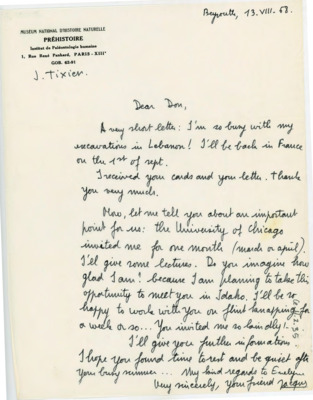 Beyrouth, 13.VIII.68.
MUSÉUM NATIONAL D'HISTOIRE NATURELLE
PRÉHISTOIRE
Institut de Paléontologie humaine
1, Rue René Panhard, PARIS-XIIIe
GOB. 62-91
J. Tixier.
Dear Don,
A very short letter: I'm so busy with my
excavations in Lebanon! I'll be back in France
on the 1st of sept.
I received your cards and your letter. Thank
you very much.
Now, let me tell you about an important
point for us: the University of Chicago
invited me for one month (march or april).
I'll give some lectures. Do you imagine how
glad I am! because I am planning to take this
opportunity to meet you in Idaho. I'll be so
happy to work with you on flint knapping for
a week or so... You invited me so kindly!
I'll give you further information
I hope you found time to rest and be quiet after
your busy summer... My kind regards to Evelyn
Very sincerely, your friend Jacques